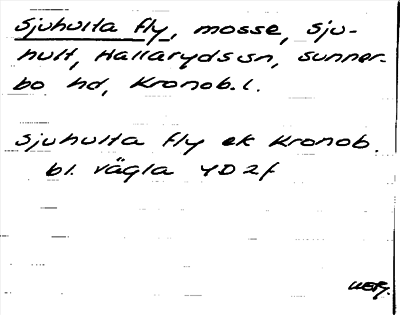 Sjuhulta fly, mosse, Sju-
hult, Hallaryds sn, Sunner-
bo hd, Kronob. l.
Sjuhulta fly ek Kronob.
bl. Vägla 4D2f